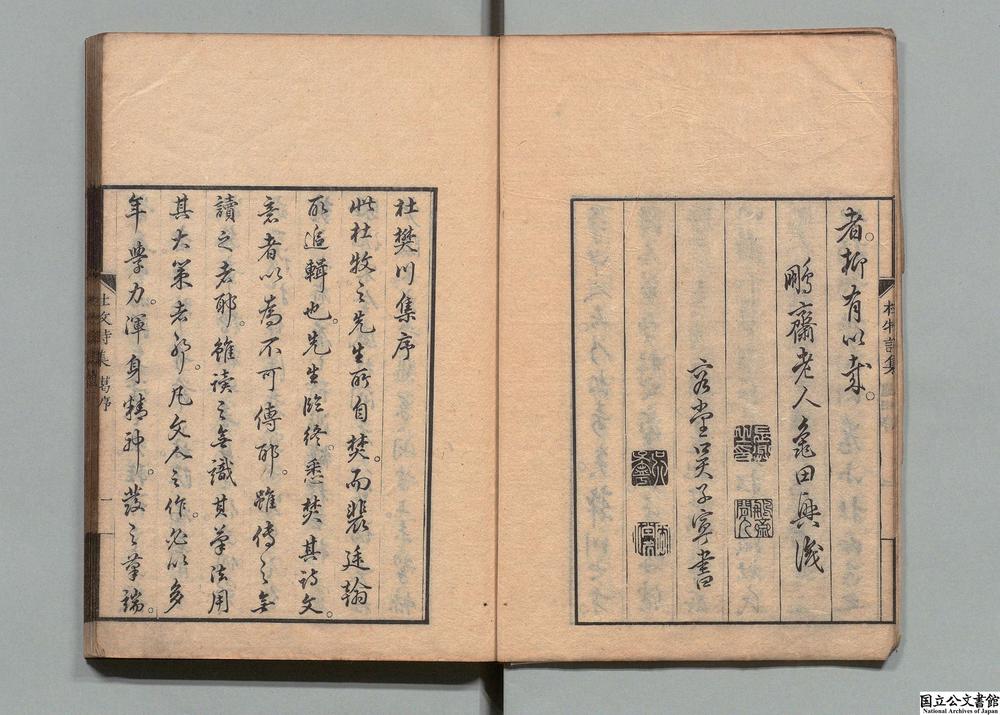 者。抑有以哉。
鵬齋老人龜田興識
容堂吳子寧書
杜樊川集序
此杜牧之先生所自焚。而裴延翰
所追輯也。先生臨終。悉焚其詩文
意者以為不可傳耶。雖傳之無
讀之者耶。雖讀之無識其筆法用
其大策者歟。凡文人之作。必以多
年學力。渾身精神。發之筆端。
杜牧詩集 舊序 一
国立公文書館
National Archives of Japan